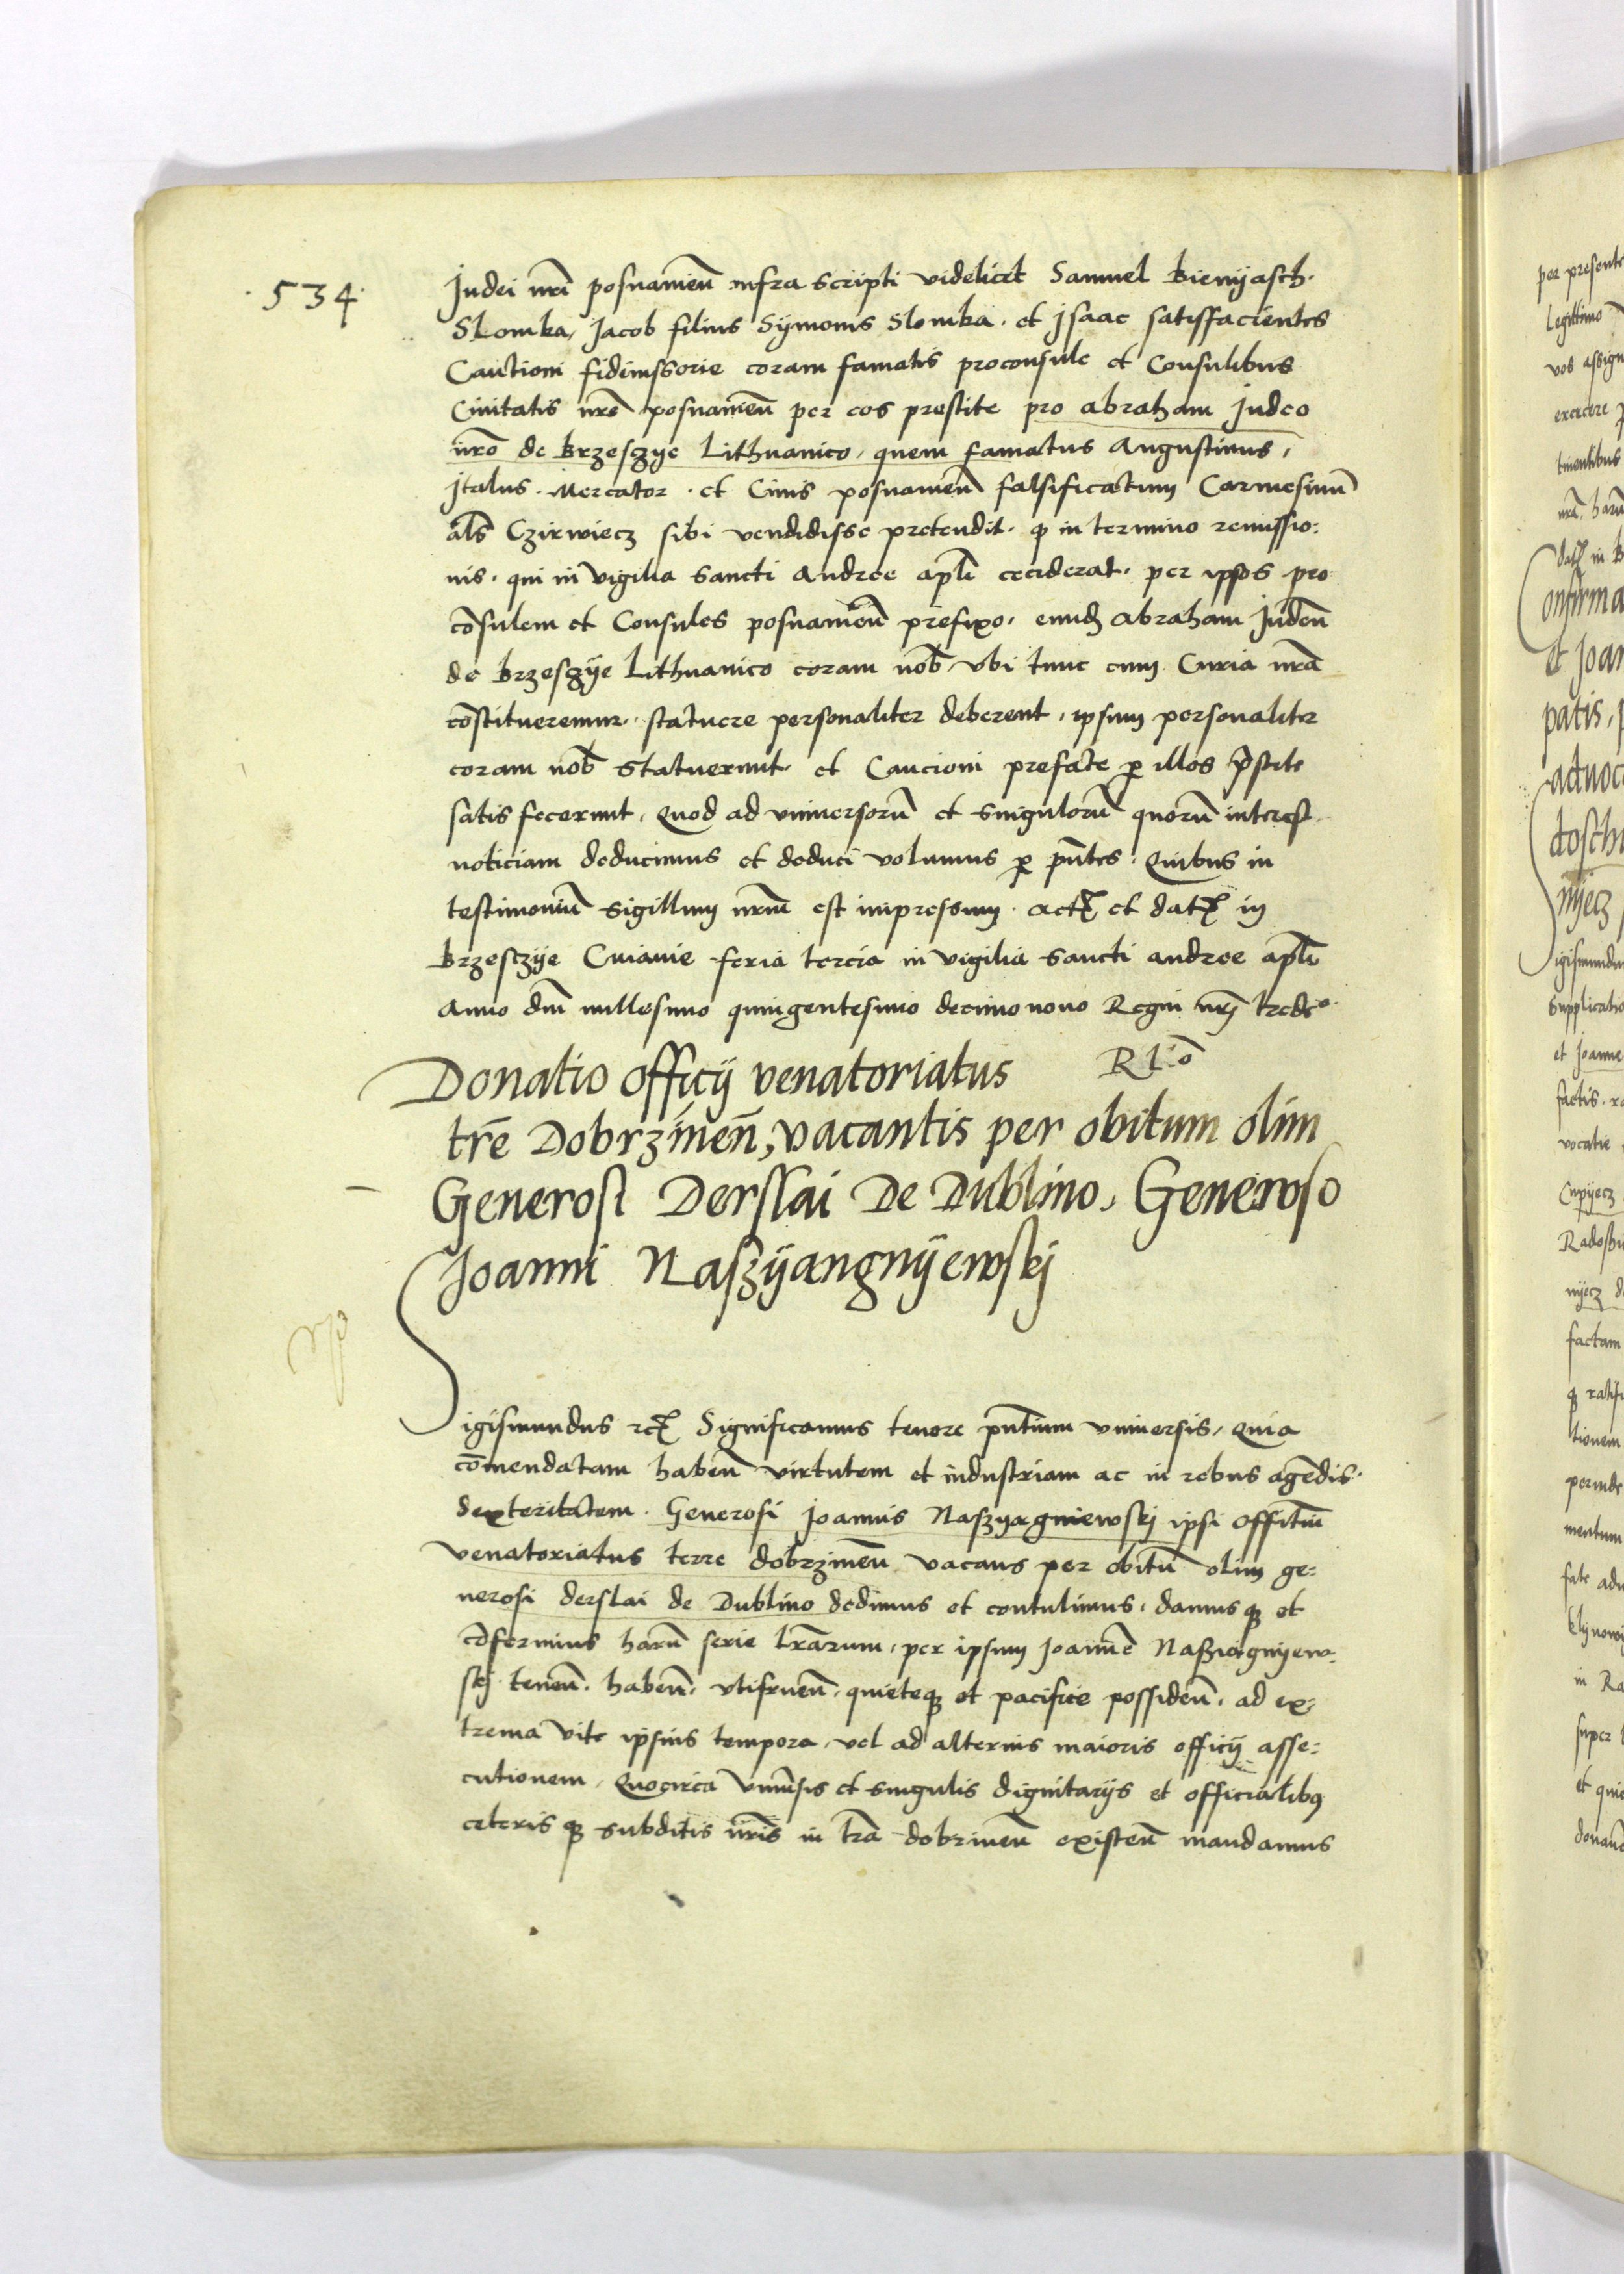 534
Judei nrī posnanieñ infra scripti videlicet Samuel Bienyasch.
Slomka, Jacob filius Symonis Slomka. et Jsaac satisfacientes
Cautioni fideiussorie coram famatis proconsule et Consulibus
Civitatis nrē posnanieñ per eos prestite pro abraham judeo
nrō de Brzesczye Lithvanico, quem famatus Augustinus,
Jtalus. Mercator. et Civis posnanieñ falsificatum Carmesinū
als̄ Czirwiecz sibi vendidisse pretendit. qƺ in termino remissio:
nis. qui in vigilia sancti Andree apl̄i ceciderat. per ipsos pro
cōsulem et Consules posnanieñ prefixo. eundƺ Abraham Judeū
de Brzesczye Lithvanico coram nob̄. vbi tunc cum Curia nrā
cōstitueremur. statuere personaliter deberent, ipsum personaliter
coram nob̄ statuerunt. et Caucioni prefate ꝑ illos p̄stite
satis fecerunt. Quod ad vniversorū et singulorū quorū interest
noticiam deducimus et deduci volumus ꝑ pn̄tes. Quibus in
testimoniū sigillum nrūm est impressum. Actꝭ et datꝭ in
Brzesczye Cuiavie feria tercia in vigilia Sancti andree apl̄i
Anno dnī millesimo quingentesimo decimo nono Regni nrī tredco.
Donatio officij venatoriatus
trē Dobrzineñ, vacantis per obitum olim
Generosi Derslai De Dublino, Generoso
Joanni Naszyangnyewskj
Sigismundus rcꝭ Significamus tenore pn̄tium vniversis, Quia
cōmendatam habeñ virtutem et industriam ac in rebus agēdis.
dexteritatem. Generosi Joannis Naszyagniewskj ipsi officiū
venatoriatus terre dobrzineñ vacans per obitū olim ge:
nerosi derslai de Dublino dedimus et contulimus. damus qƺ et
cōferimus harū serie lrārum, per ipsum Joannē Naszyagnyew:
skj teneñ. habeñ. vtifrueñ. quieteqƺ et pacifice possideñ. ad ex:
trema vite ipsius tempora, vel ad alterius maioris officij asse:
cutionem. Quocirca vniv̄sis et singulis dignitarijs et officialibꝰ
ceteris qƺ subditis nrīs in trā dobrineñ existeñ mandamus